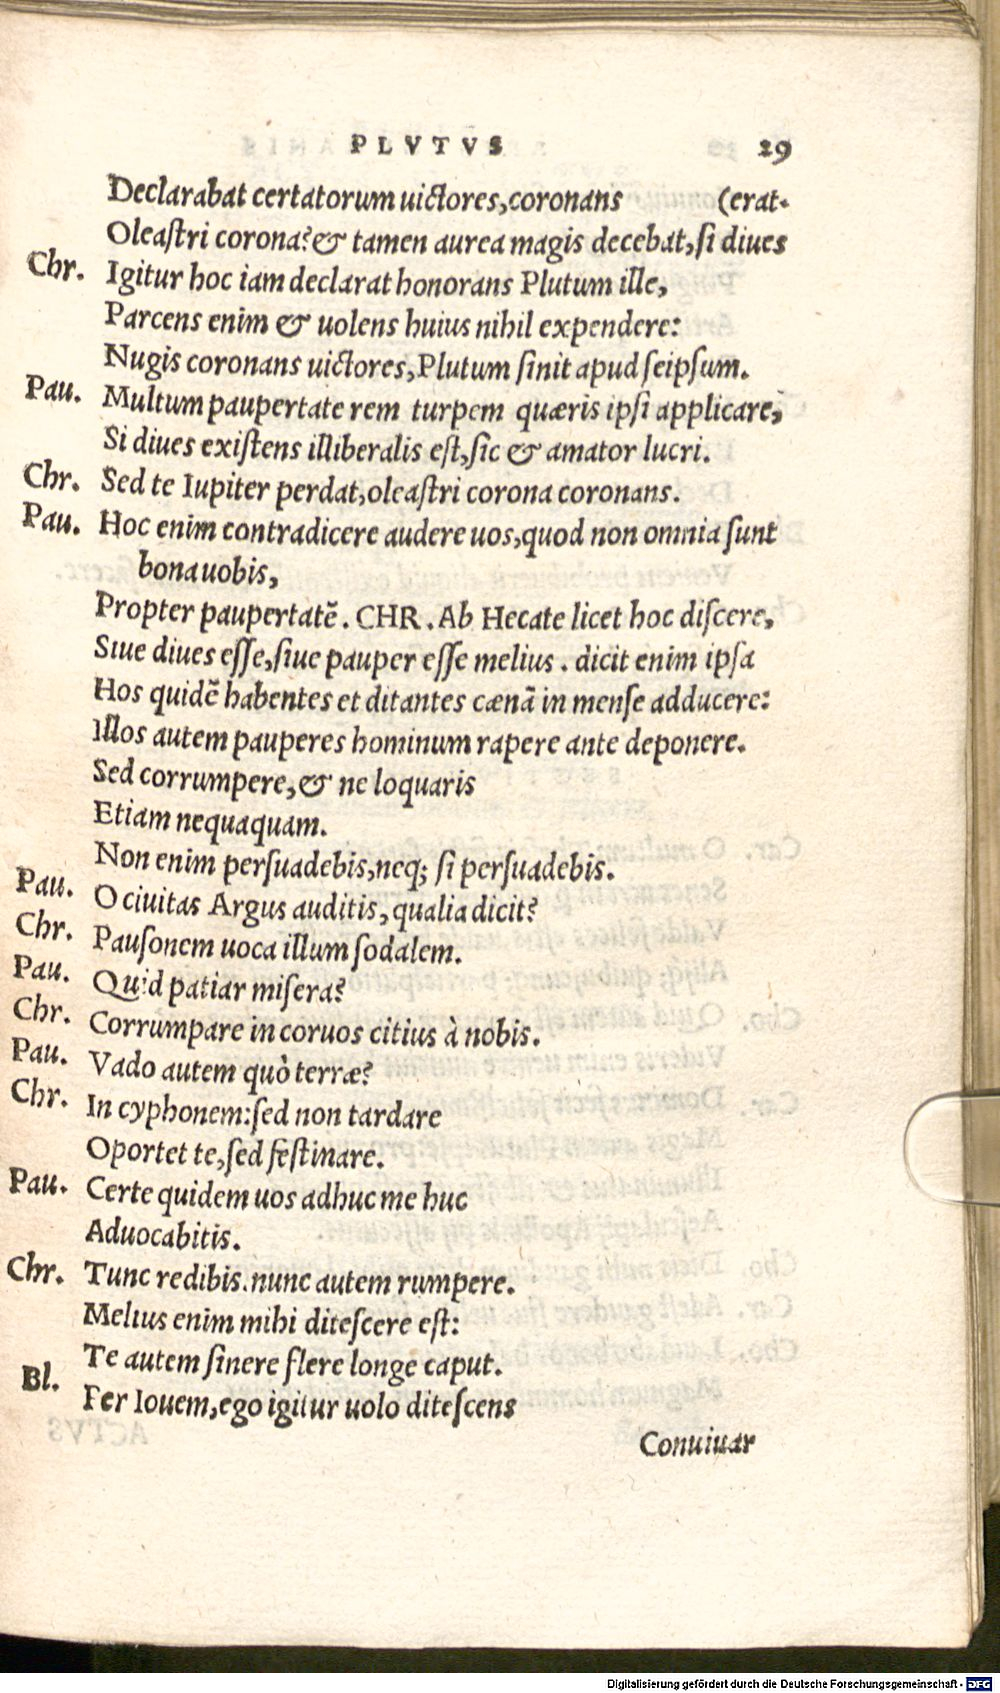 PLVTVS 29
Declarabat certatorum uictores, coronans (erat.
Oleaſtri corona? & tamen aurea magis decebat, ſi diues
Chr. Igitur hoc iam declarat honorans Plutum ille,
Parcens enim & uolens huius nihil expendere:
Nugis coronans uictores, Plutum ſinit apud ſeipſum.
Pau. Multum paupertate rem turpem quæris ipſi applicare,
Si diues exiſtens illiberalis eſt, ſic & amator lucri.
Chr. Sed te Iupiter perdat, oleaſtri corona coronans.
Pau. Hoc enim contradicere audere uos, quod non omnia ſunt
bona uobis,
Propter paupertatẽ. CHR. Ab Hecate licet hoc diſcere,
Siue diues eſſe, ſiue pauper eſſe melius. dicit enim ipſa
Hos quidẽ habentes et ditantes cænã in menſe adducere:
Illos autem pauperes hominum rapere ante deponere.
Sed corrumpere, & ne loquaris
Etiam nequaquam.
Non enim perſuadebis, neq; ſi perſuadebis.
Pau. O ciuitas Argus auditis, qualia dicit?
Chr. Pauſonem uoca illum ſodalem.
Pau. Quid patiar miſera?
Chr. Corrumpare in coruos citius à nobis.
Pau. Vado autem quò terræ?
Chr. In cyphonem: ſed non tardare
Oportet te, ſed feſtinare.
Pau. Certe quidem uos adhuc me huc
Aduocabitis.
Chr. Tunc redibis. nunc autem rumpere.
Melius enim mihi diteſcere eſt:
Te autem ſinere flere longe caput.
Bl. Per Iouem, ego igitur uolo diteſcens
Conuiuar
Digitalisierung gefördert durch die Deutsche Forschungsgemeinschaft - DFG